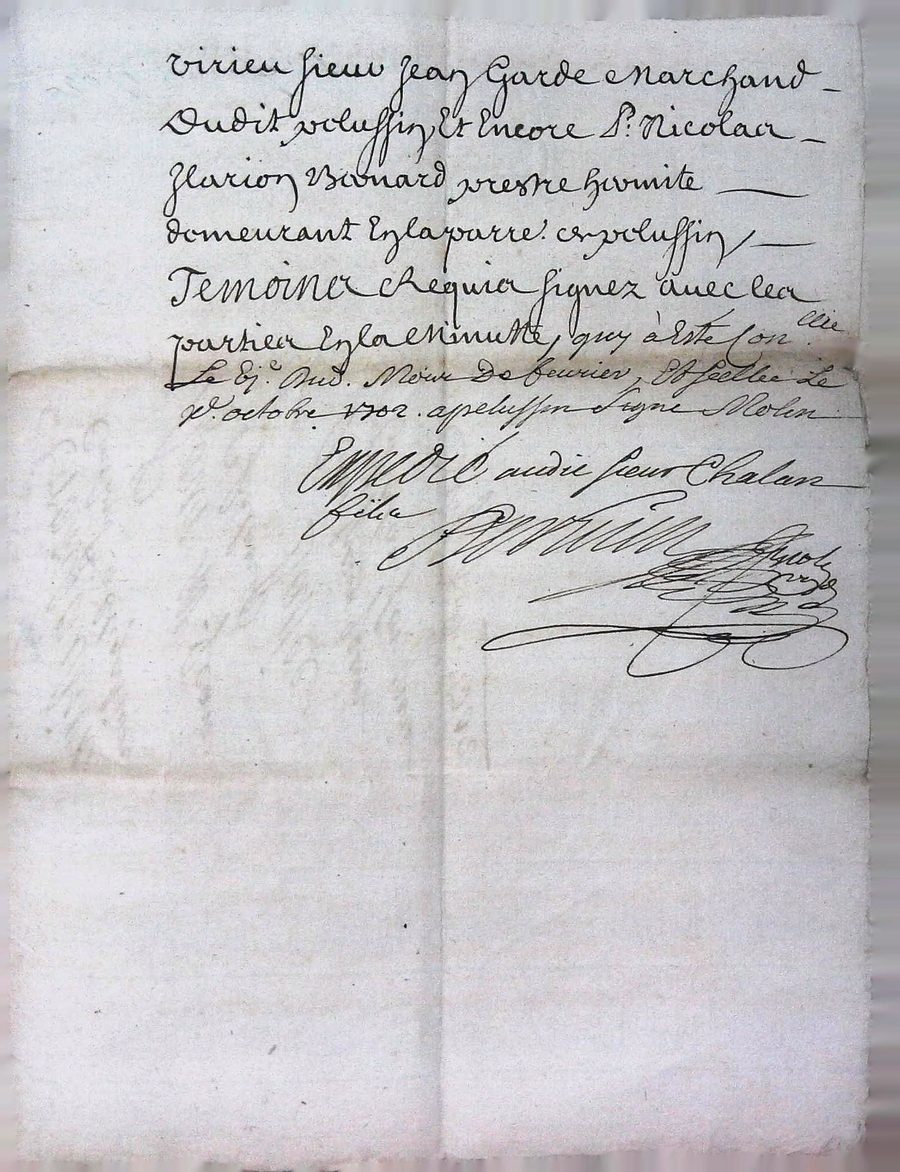 virieu sieur Jean Garde Marchand
Dudit pelussin, Et Encore Sr. Nicolas
Jlarion prestre hermite
demeurant En la parre. de pelussin,
Temoins Requis signez avec les
parties En la Minutte, quy à Esté Con.elléé
Le Ej.e Dud. Mois De feuvrier, Et scellée Le
xe. octobre 1702. a pelussin Signé Molin
Expedié audit sieur Chalan
fils